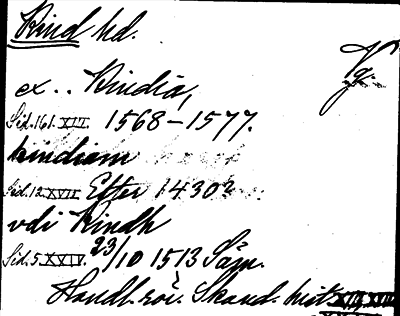 Kind hd.
Vg.
ex.. Kindia,
Sid. 161. XII. 1568-1577.
kindiom
Sid. 12 XVII Efter 1430?
vdi Kindh
Sid. 5 XXIV. 23/10 1513
Handl. rör. Skand. hist.